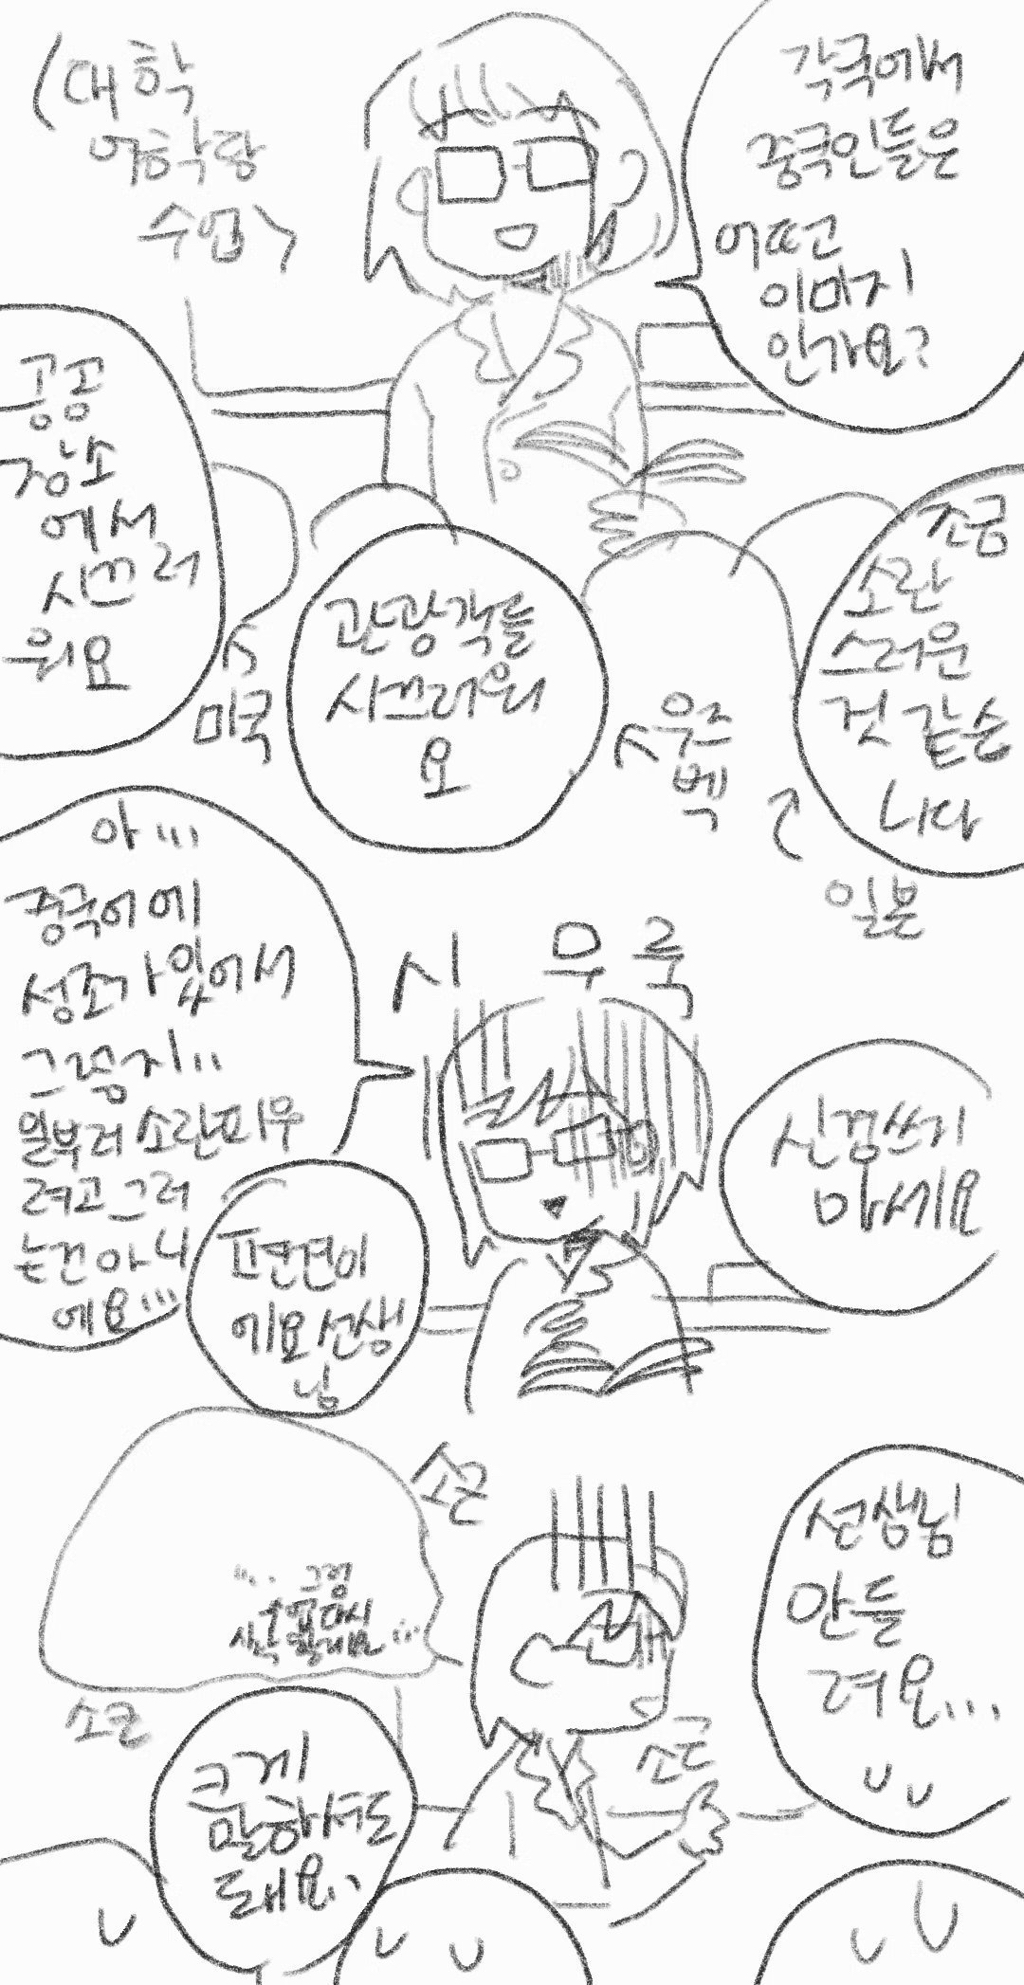 (대학
어학당
수업)
각국에서
중국인들은
어떤
이미지
인가요?
공공
장소
에서
시끄러
워요
미국
관광객들
시끄러워
요
우즈
벡
조금
소란
스러운
것 같습
니다
일본
아...
중국어에
성조가 있어서
그런지..
일부러 소란피우
려고 그러
는건 아니
에요...
시무룩
신경쓰지
마세요
편견이
에요 선생
님
소근
.... 그럼
수업 다시
시작 할게요 ...
소근
소근
선생님
안들
려요...
크게
말하셔도
돼요..